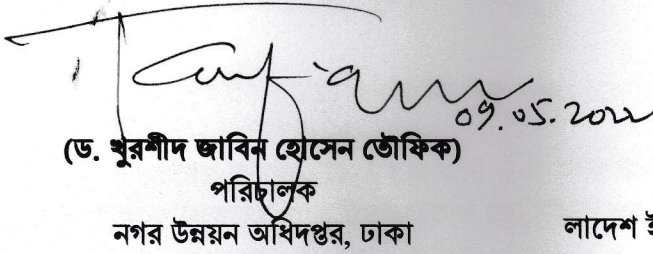 09.05.2022
(ড. খুরশীদ জাবিন হোসেন তৌফিক)
পরিচালক
নগর উন্নয়ন অধিদপ্তর, ঢাকা
লাদেশ ই